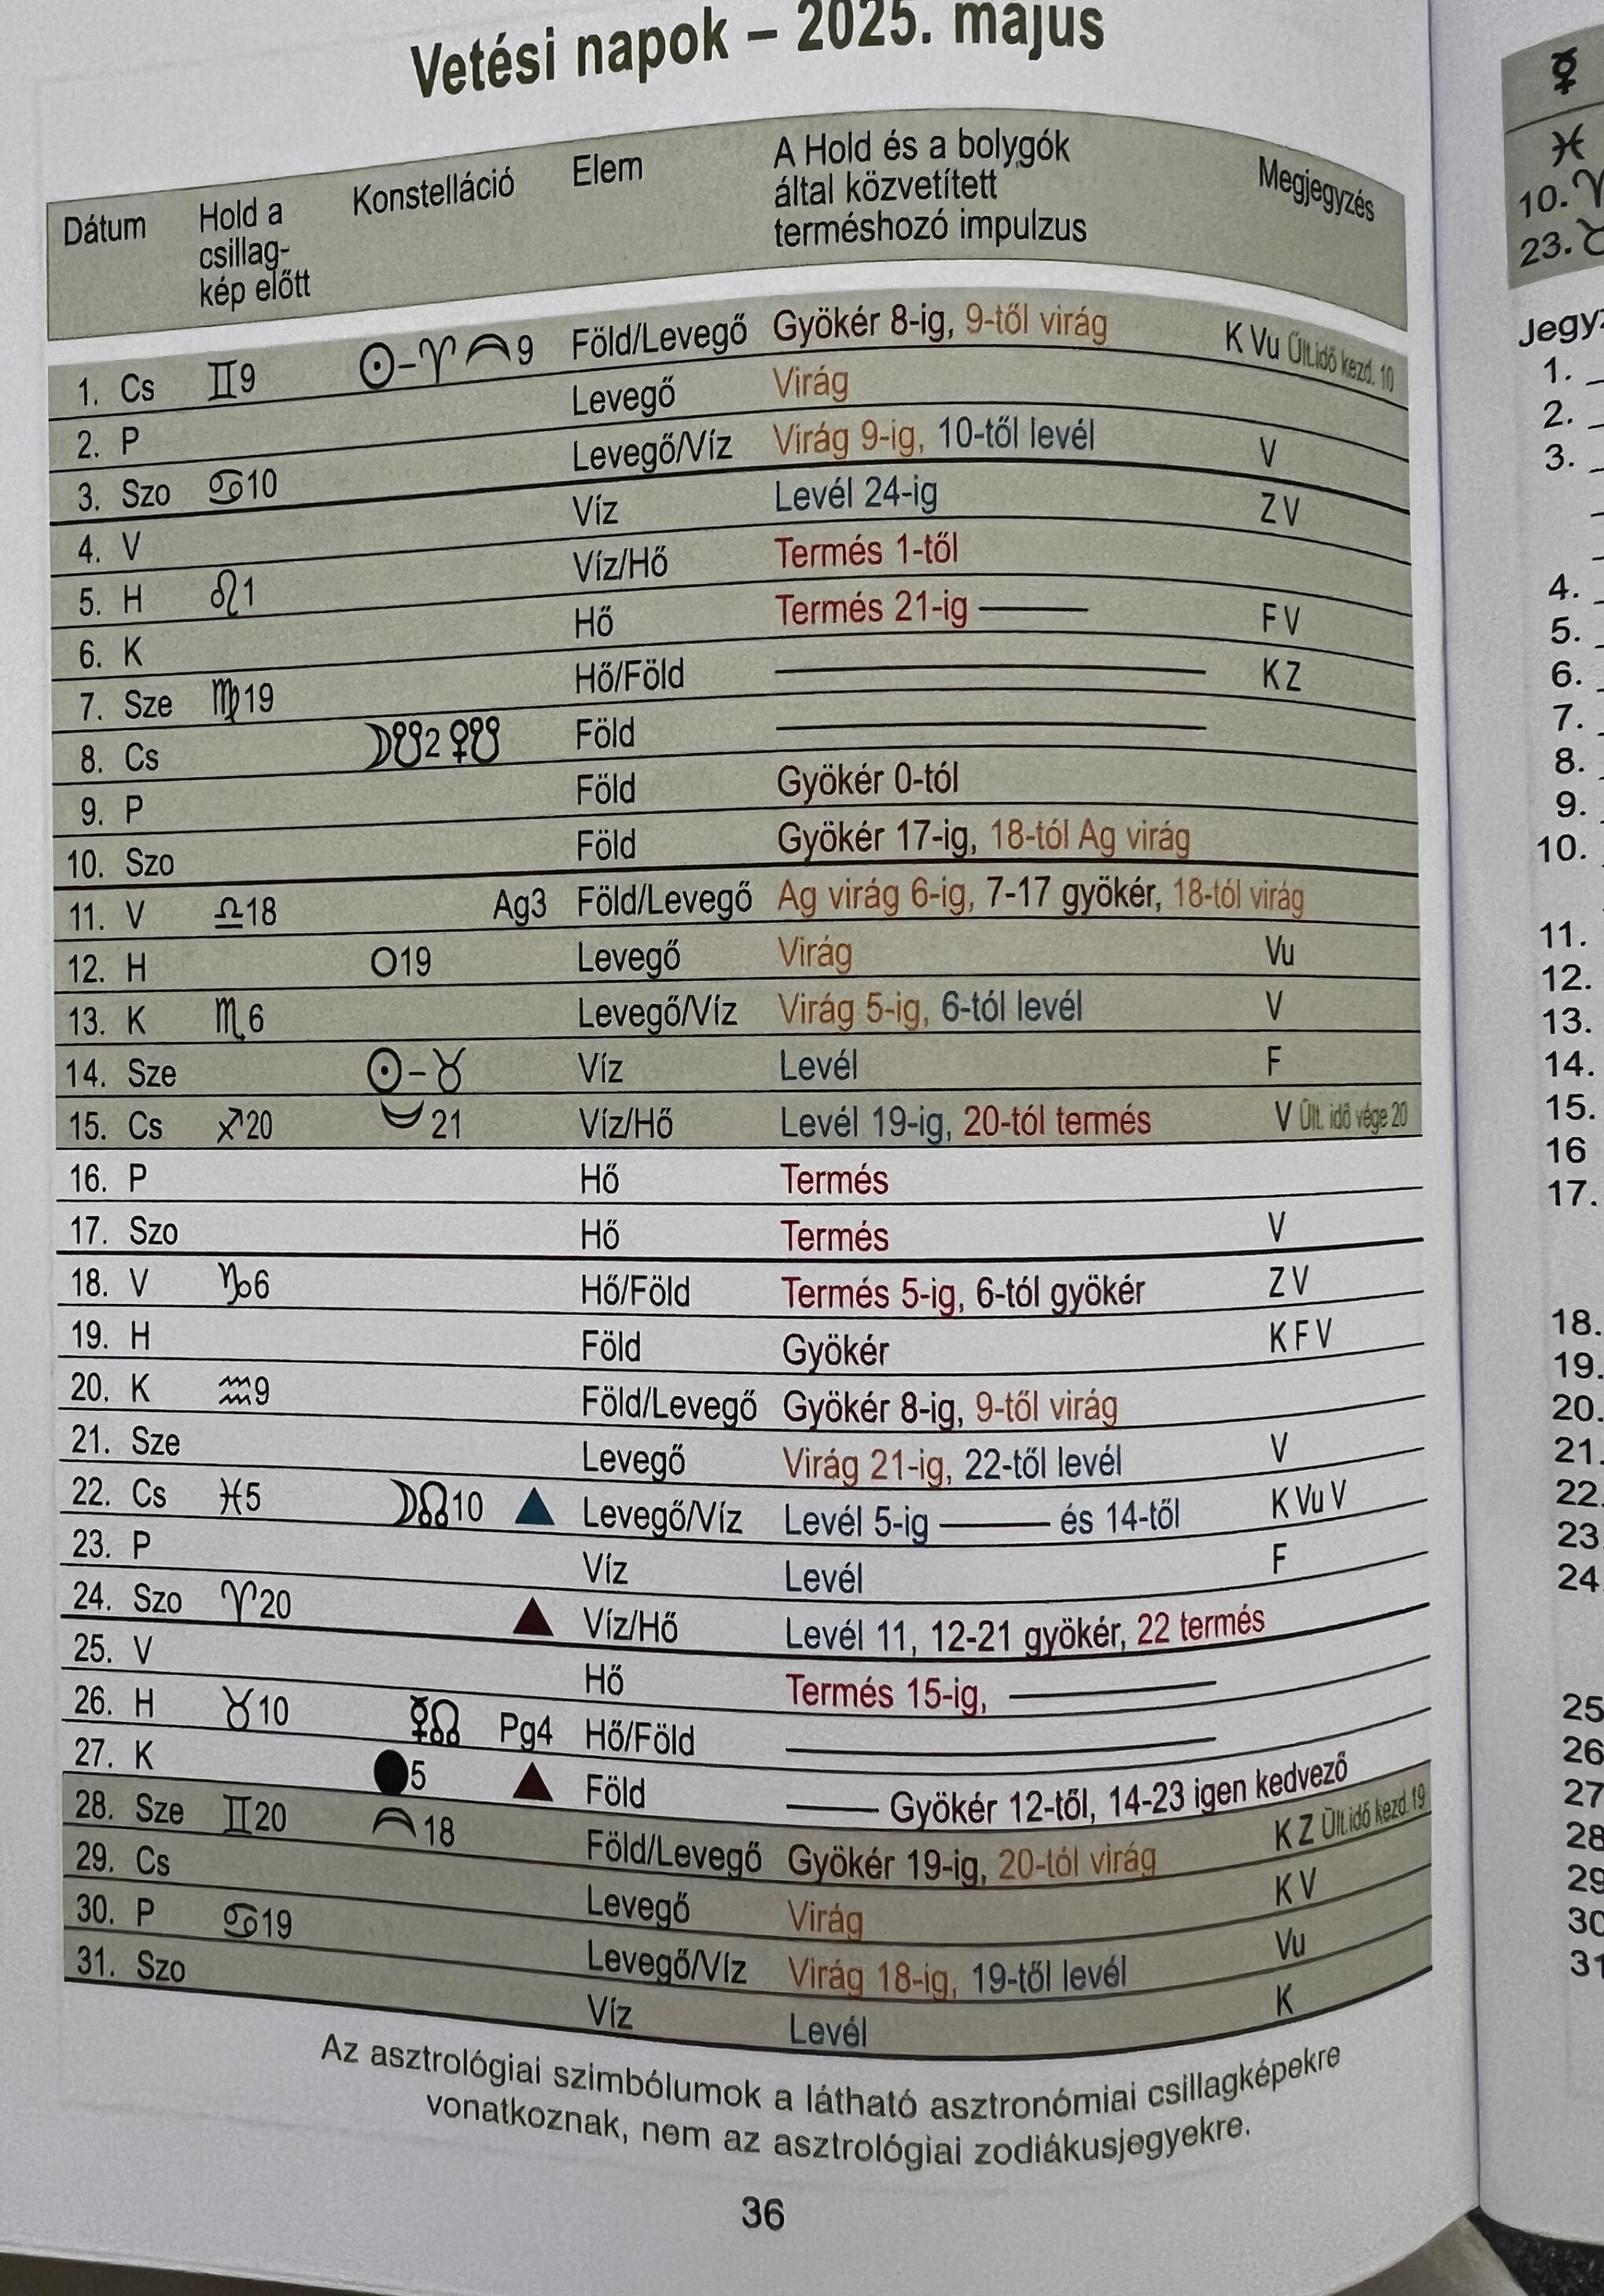 Vetési napok – 2025. május
Dátum Hold a csillag-kép előtt Konstelláció Elem A Hold és a bolygók által közvetített terméshozó impulzus Megjegyzés
1. Cs ♊9 ☉–♈ 9 Föld/Levegő Gyökér 8-ig, 9-től virág K Vu Ült.idő kezd. 10
2. P Levegő Virág
3. Szo ♋10 Levegő/Víz Virág 9-ig, 10-től levél V
4. V Víz Levél 24-ig Z V
5. H ♌1 Víz/Hő Termés 1-től
6. K Hő Termés 21-ig —— F V
7. Sze ♍19 Hő/Föld —— K Z
8. Cs ☽☋2 ♀☋ Föld ——
9. P Föld Gyökér 0-tól
10. Szo Föld Gyökér 17-ig, 18-tól Ag virág
11. V ♎18 Ag3 Föld/Levegő Ag virág 6-ig, 7-17 gyökér, 18-tól virág
12. H ○19 Levegő Virág Vu
13. K ♏6 Levegő/Víz Virág 5-ig, 6-tól levél V
14. Sze ☉–♉ Víz Levél F
15. Cs ♐20 21 Víz/Hő Levél 19-ig, 20-tól termés V Ült. idő vége 20
16. P Hő Termés
17. Szo Hő Termés V
18. V ♑6 Hő/Föld Termés 5-ig, 6-tól gyökér Z V
19. H Föld Gyökér K F V
20. K ♒9 Föld/Levegő Gyökér 8-ig, 9-től virág
21. Sze Levegő Virág 21-ig, 22-től levél V
22. Cs ♓5 ☽☊10 ▲ Levegő/Víz Levél 5-ig —— és 14-től K Vu V
23. P Víz Levél F
24. Szo ♈20 ▲ Víz/Hő Levél 11, 12-21 gyökér, 22 termés
25. V Hő Termés 15-ig, ——
26. H ♉10 ☿☊ Pg4 Hő/Föld ——
27. K ●5 ▲ Föld —— Gyökér 12-től, 14-23 igen kedvező
28. Sze ♊20 18 Föld/Levegő Gyökér 19-ig, 20-tól virág K Z Ült.idő kezd.19
29. Cs Levegő Virág K V
30. P ♋19 Levegő/Víz Virág 18-ig, 19-től levél Vu
31. Szo Víz Levél K
Az asztrológiai szimbólumok a látható asztronómiai csillagképekre
vonatkoznak, nem az asztrológiai zodiákusjegyekre.
36
☿
♓
10. ♈
23. ♉
1.
2.
3.
4.
5.
6.
7.
8.
9.
10.
11.
12.
13.
14.
15.
16
17.
18.
19.
20.
21.
22.
23
24
25
26
27
28
29
30
31